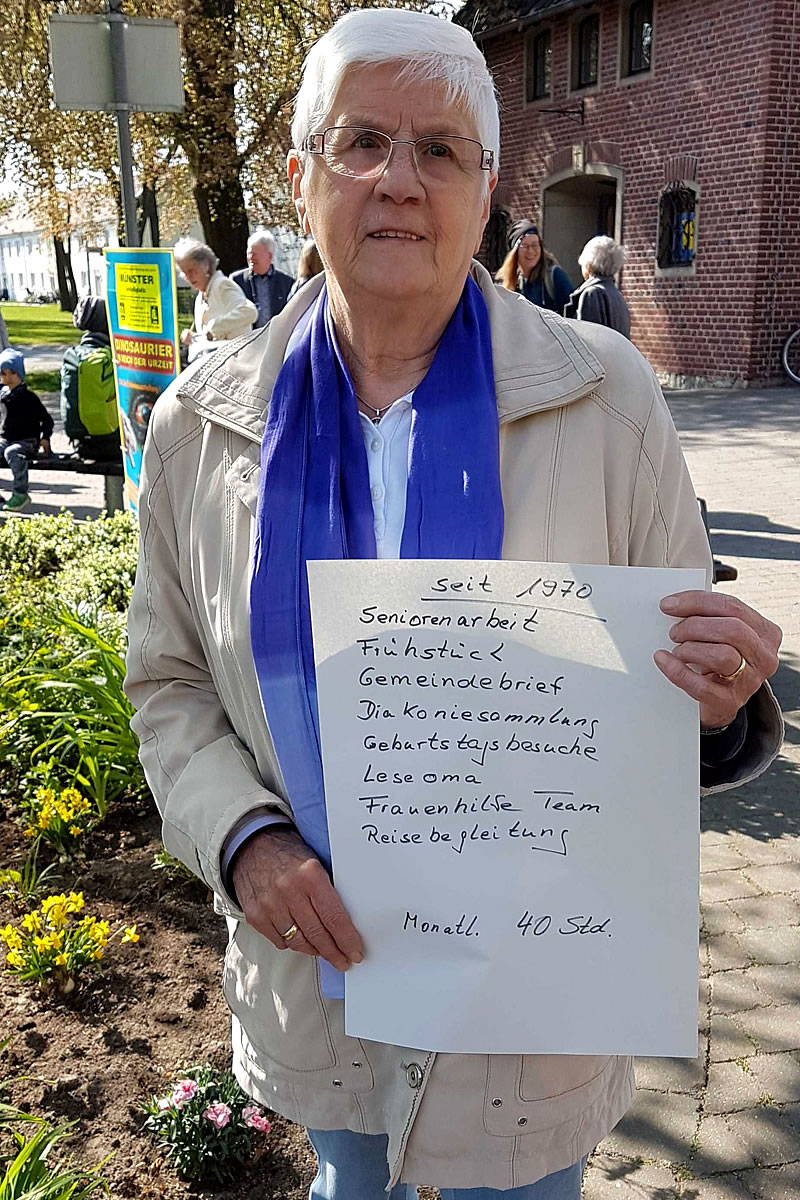 MÜNSTER
DINOSAURIER
IM REICH DER URZEIT
seit 1970
Seniorenarbeit
Frühstück
Gemeindebrief
Diakoniesammlung
Geburtstagsbesuche
Leseoma
Frauenhilfe Team
Reisebegleitung
Monatl. 40 Std.